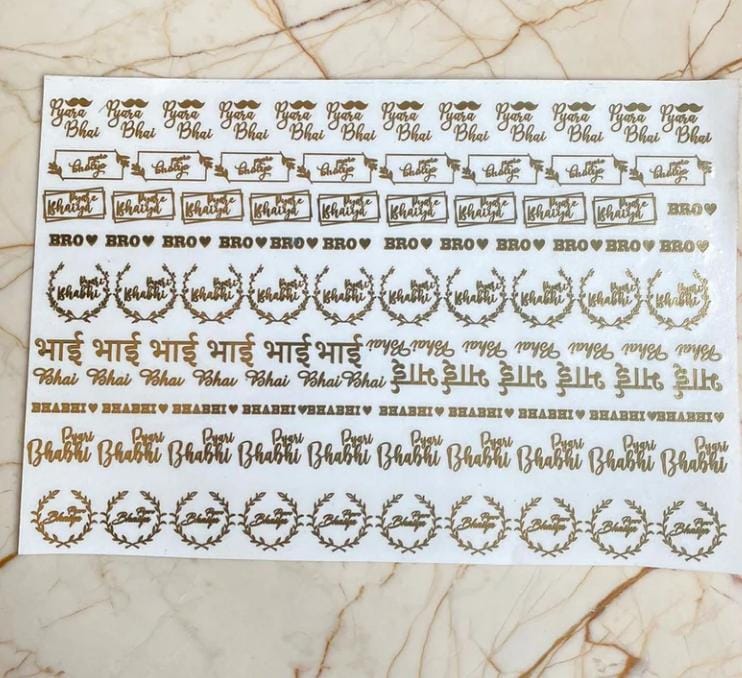 Pyara Pyara Pyara Pyara Pyara Pyara Pyara Pyara Pyara Pyara Pyara Pyara
Bhai Bhai Bhai Bhai Bhai Bhai Bhai Bhai Bhai Bhai Bhai Bhai
Pyare Pyare Pyare Pyare Pyare Pyare Pyare Pyare
bhaiya bhaiya bhaiya bhaiya bhaiya bhaiya bhaiya bhaiya
Pyare Pyare Pyare Pyare Pyare Pyare Pyare Pyare Pyare
Bhaiya Bhaiya Bhaiya Bhaiya Bhaiya Bhaiya Bhaiya Bhaiya Bhaiya BRO♥
BRO♥ BRO♥ BRO♥ BRO♥ BRO♥ BRO♥ BRO♥ BRO♥ BRO♥ BRO♥ BRO♥ BRO♥
Pyari Pyari Pyari Pyari Pyari Pyari Pyari Pyari Pyari Pyari
Bhabhi Bhabhi Bhabhi Bhabhi Bhabhi Bhabhi Bhabhi Bhabhi Bhabhi Bhabhi
भाई भाई भाई भाई भाई भाई Bhai Bhai Bhai Bhai Bhai Bhai Bhai
Bhai Bhai Bhai Bhai Bhai Bhai Bhai भाई भाई भाई भाई भाई भाई
BHABHI♥ BHABHI♥ BHABHI♥ BHABHI♥ BHABHI♥ BHABHI♥ BHABHI♥ BHABHI♥ BHABHI♥ BHABHI♥
Pyari Pyari Pyari Pyari Pyari Pyari Pyari Pyari Pyari Pyari
Bhabhi Bhabhi Bhabhi Bhabhi Bhabhi Bhabhi Bhabhi Bhabhi Bhabhi Bhabhi
Pyare Pyare Pyare Pyare Pyare Pyare Pyare Pyare Pyare Pyare
Bhaiya Bhaiya Bhaiya Bhaiya Bhaiya Bhaiya Bhaiya Bhaiya Bhaiya Bhaiya